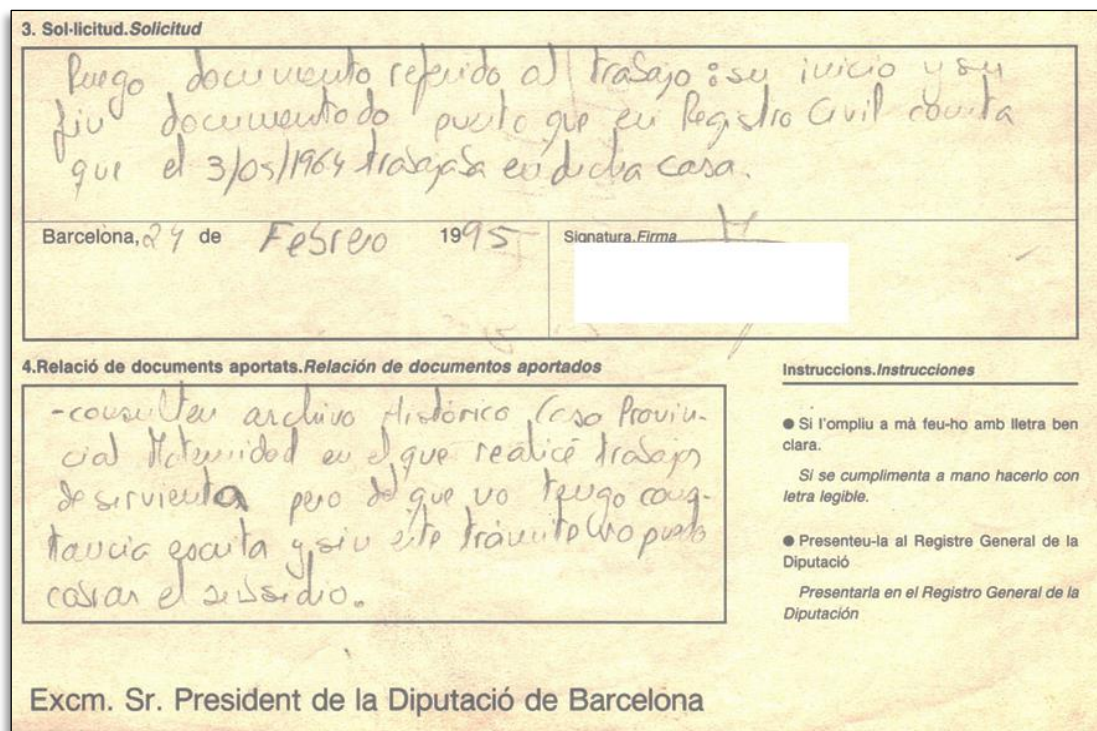 3. Sol·licitud.Solicitud
Ruego documento referido al trabajo: su inicio y su
fin documentado puesto que en Registro Civil consta
que el 3/05/1964 trabajaba en dicha casa.
Barcelona, 24 de Febrero 1995
Signatura.Firma
4.Relació de documents aportats.Relación de documentos aportados
-consulten archivo Histórico Casa Provin-
cial Maternidad en el que realicé trabajos
de sirvienta pero del que no tengo cons-
tancia escrita y sin este trámite no puedo
cobrar el subsidio.
Instruccions.Instrucciones
● Si l'ompliu a mà feu-ho amb lletra ben
clara.
Si se cumplimenta a mano hacerlo con
letra legible.
● Presenteu-la al Registre General de la
Diputació
Presentarla en el Registro General de la
Diputación
Excm. Sr. President de la Diputació de Barcelona